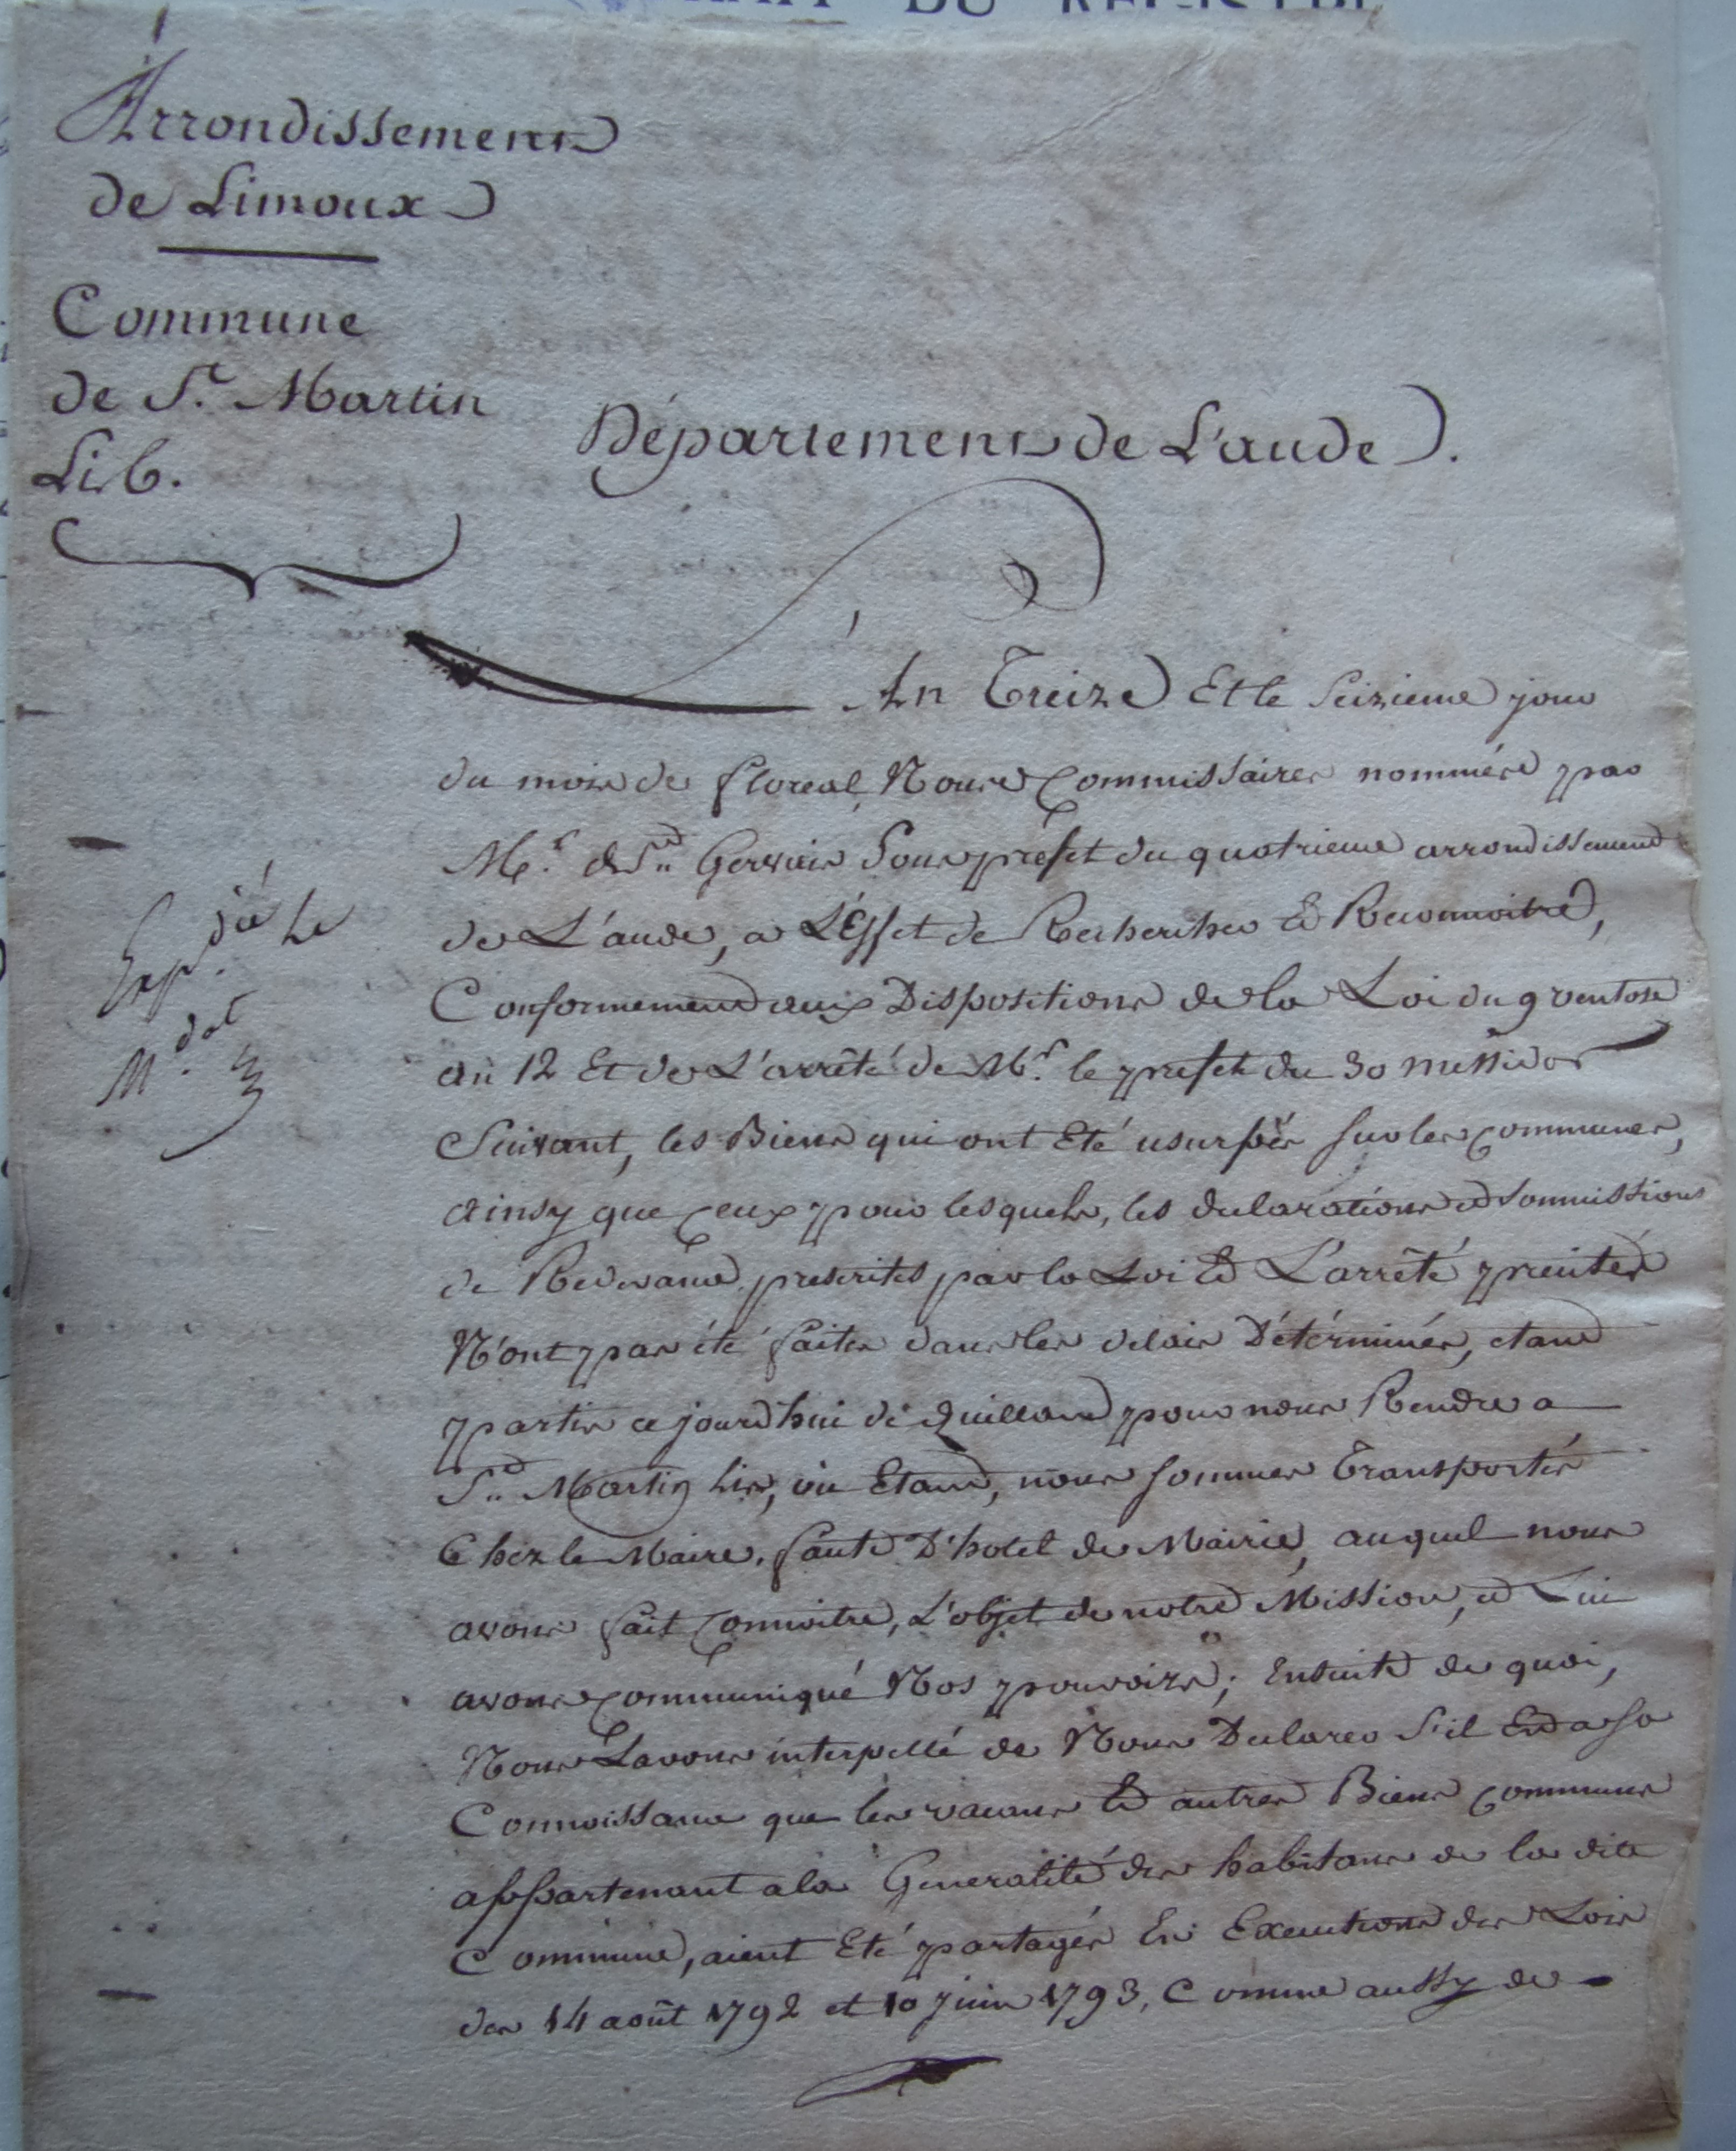 DU REGISTRE
Arrondissement
de Limoux
Commune
de St. Martin
Lib.
Département de L'aude.
An Treize Et le Seizieme jour
du mois de floreal, Nous Commissaires nommés par
Mr. de St. Gervais Sous prefet du quatrieme arrondissement
de L'aude, a L'Effet de Rechercher Et Reconnoitre,
Conformement aux Dispositions de la Loi du 9 ventose
an 12 Et de L'arrêté de Mr. le prefet du 30 messidor
Suivant, les Biens qui ont Eté usurpés sur les communes,
ainsy que ceux pour lesquels, les declarations et Soumissions
de Redevance prescrites par la Loi Et L'arrêté precités
N'ont pas été faites dans les delais Détérminés, etant
partis ce jourd'hui de Quillan pour nous Rendre a
St. Martin Lis, ou Etant, nous sommes Transportés
Chez le Maire, faute D'hotel de Mairie, auquel nous
avons fait Connoitre, L'objet de notre Mission, et Lui
avons communiqué Nos pouvoirs; Ensuite de quoi,
Nous Lavons interpellé de Nous Declarer S'il Est a sa
Connoissance que les vacans Et autres Biens communs
appartenant a la Generalité des habitans de la dite
Commune, aient Eté partagés En Execution des Lois
des 14 août 1792 et 10 juin 1793, Comme aussy de
Expédié Le
M. dat